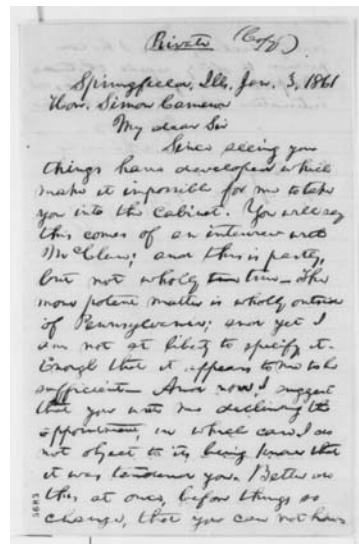 Private (Copy)
Springfield, Ills. Jan. 3, 1861
Hon. Simon Cameron
My dear Sir
Since seeing you
things have developed which
make it impossible for me to take
you into the cabinet. You will say
this comes of an interview with
McClure; and this is partly,
but not wholly true. The
more potent matter is wholly outside
of Pennsylvania; and yet I
am not at liberty to specify it.
Enough that it appears to me to be
sufficient. And now, I suggest
that you write me declining the
appointment, in which case I do
not object to its being known that
it was tendered you. Better do
this at once, before things so
change, that you can not hon-
5683